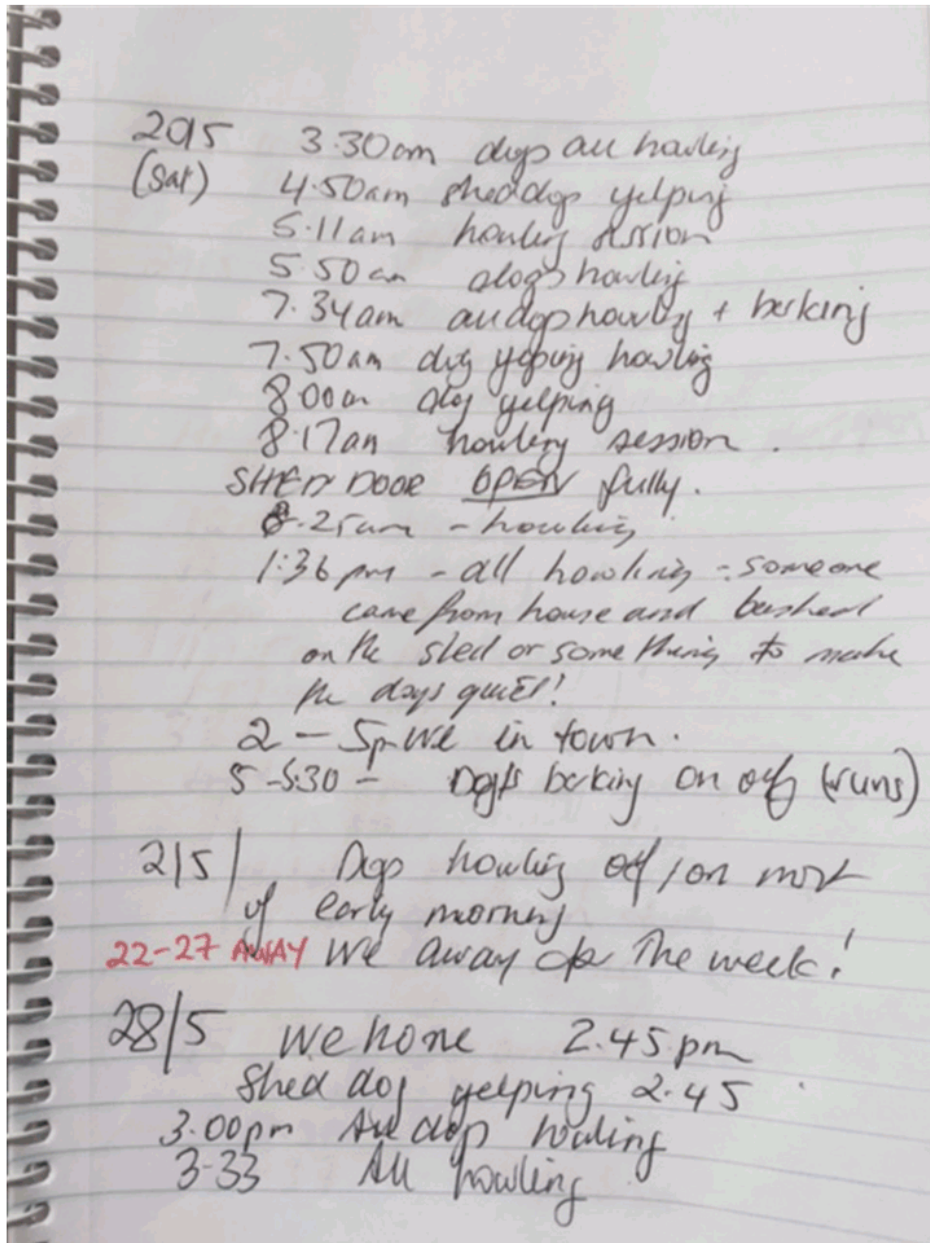 20/5 3.30am dogs all howling
(Sat) 4.50am shed dog yelping
5.11am howling session
5.50am dogs howling
7.34am all dogs howling + barking
7.50am dog yelping howling
8.00am dog yelping
8.17am howling session.
SHED DOOR OPEN fully.
8.25am - howling
1:36pm - all howling - someone
came from house and bashed
on the shed or something to make
the dogs quiet!
2 - 5pm We in town.
5-5:30 - Dogs barking on off (runs)
21/5/ Dogs howling off/on most
of early morning
22-27 AWAY We away for the week!
28/5 We home 2.45pm
Shed dog yelping 2.45
3.00pm All dogs howling
3-33 All howling